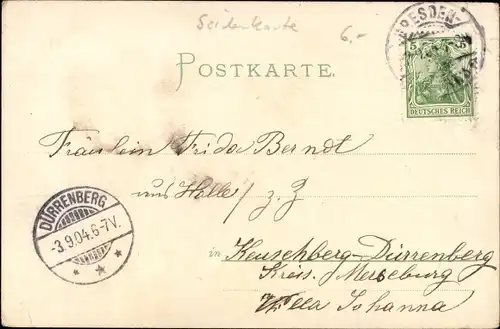 Seidenkarte
6.-
DRESDEN-
5 5
DEUTSCHES REICH
POSTKARTE.
Fräulein Frida Berndt
aus Halle/ z. Z
DÜRRENBERG
-3.9.04.6-7V.
in Keuschberg-Dürrenberg
Kreis. Merseburg
Villa Johanna